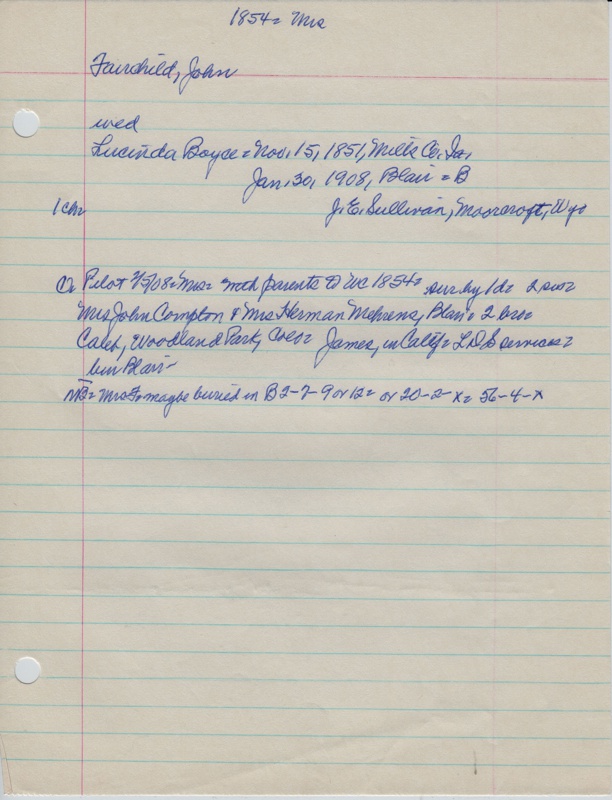 1854= Mrs
Fairchild, John
wed
Lucinda Boyce= Nov. 15, 1851, Mills Co. Ia.
Jan. 30, 1908, Blair = B
1 ch= J. E. Sullivan, Moorcroft, Wyo
O= Pilot 2/5/08= Mrs= with parents to WC 1854= sur by 1 d= 2 sis=
Mrs John Compton & Mrs Herman Mehrens, Blair= 2 bro=
Caleb, Woodland Park, Colo= James, in Calif= LDS services=
bur Blair-
NB= Mrs F= maybe buried in B 2-7-9 or 12= or 20-2-x= 56-4-x